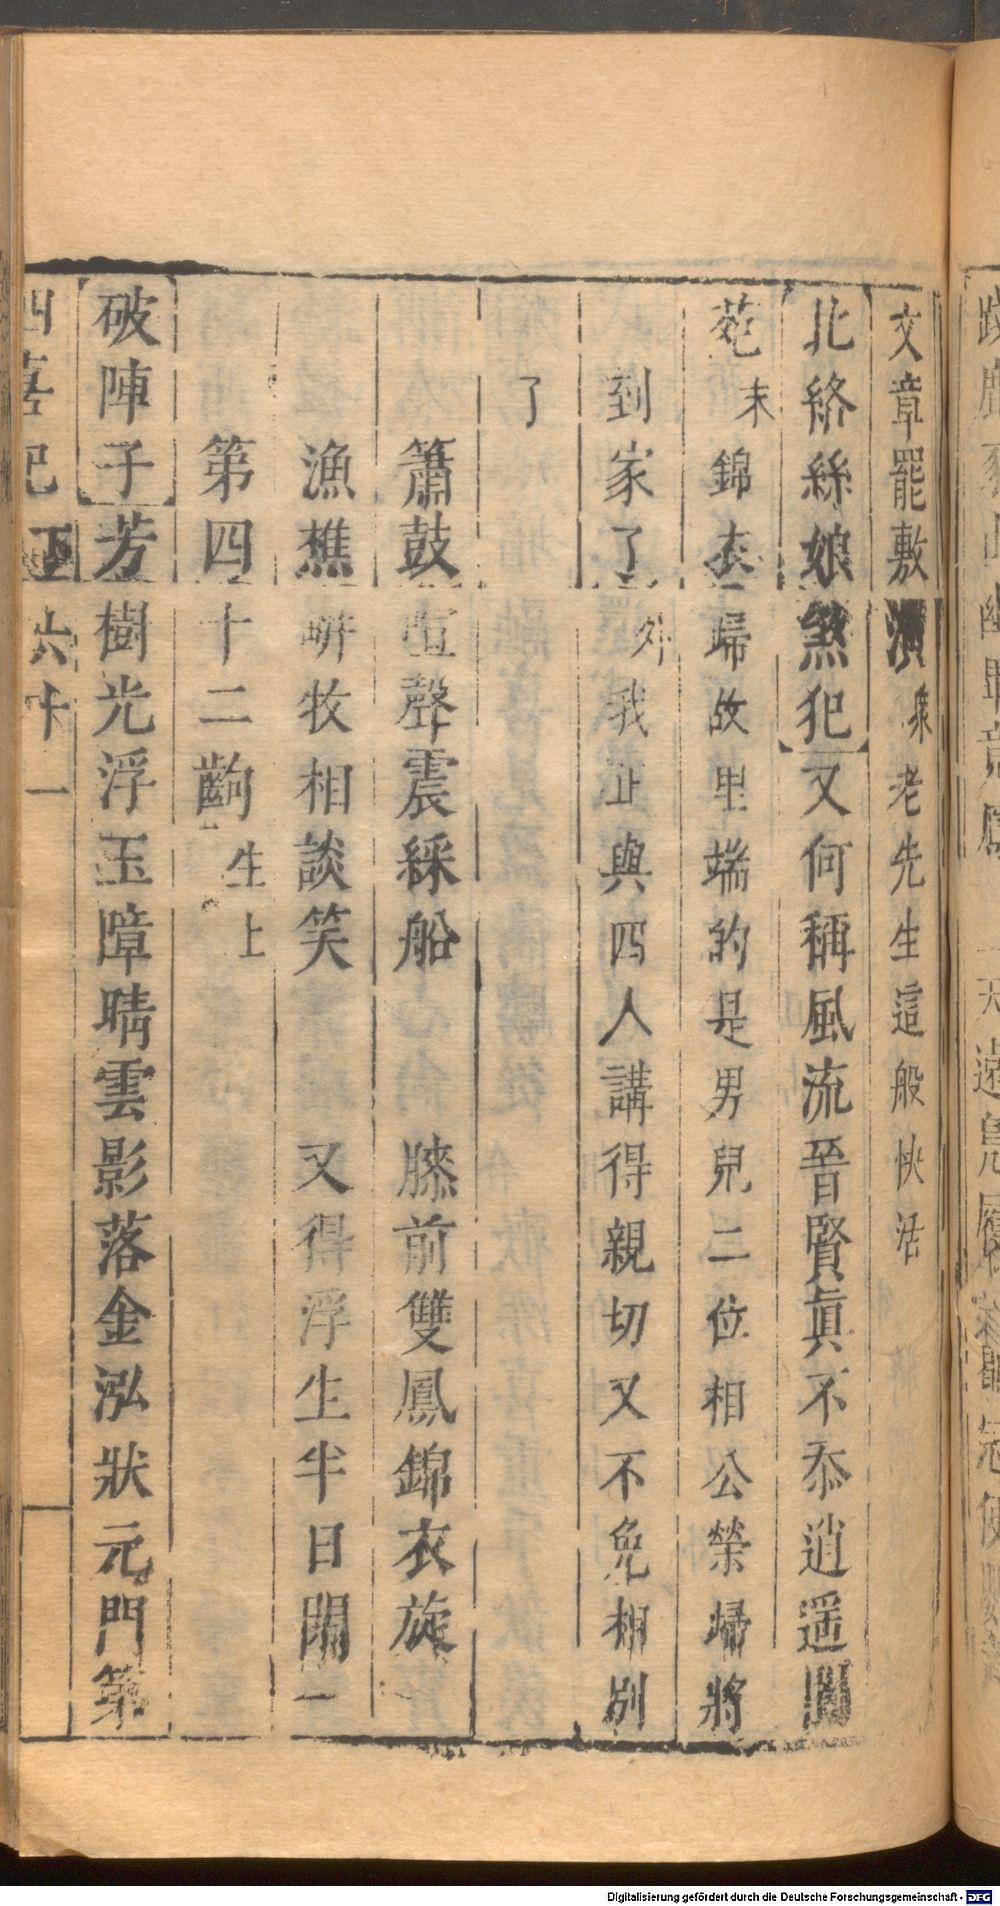 文章罷敷演衆老先生這般快活
北絡絲娘煞犯又何稱風流晉賢眞不忝逍遥閬
苑末錦衣歸故里端的是男兒二位相公榮歸將
到家了外我止與四人講得親切又不免相別
了
簫鼓喧聲震綵船　膝前雙鳳錦衣旋
漁樵畊牧相談笑　又得浮生半日閒
第四十二齣生上
破陣子芳樹光浮玉障晴雲影落金泓狀元門第
四喜記 下 六十一
Digitalisierung gefördert durch die Deutsche Forschungsgemeinschaft - DFG